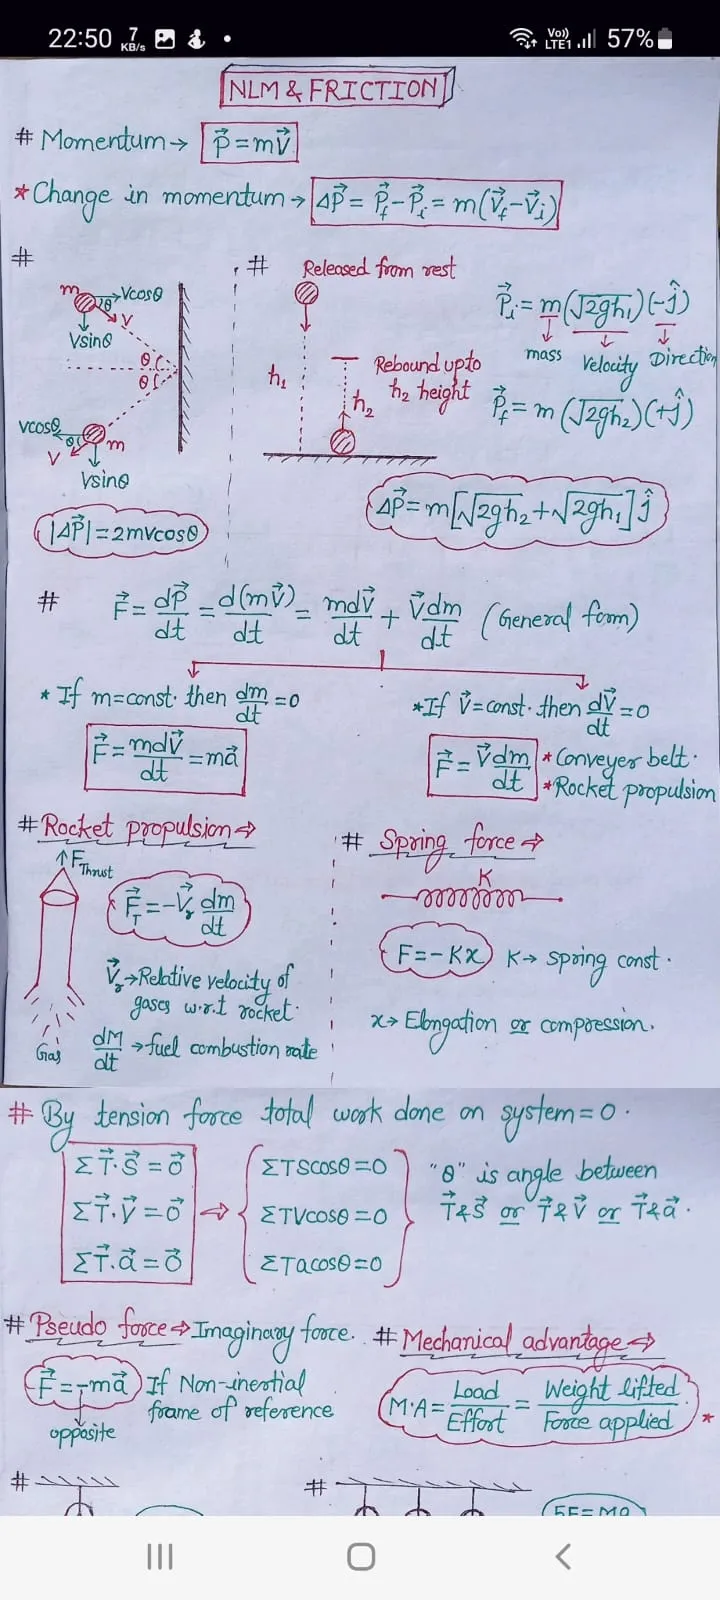 22:50 7 KB/s Vo)) LTE1 57%
NLM & FRICTION
# Momentum → P⃗ = mV⃗
* Change in momentum → ΔP⃗ = P⃗f − P⃗i = m(V⃗f − V⃗i)
#
m Vcosθ
θ V
Vsinθ
θ
θ
Vcosθ
θ m
V
Vsinθ
|ΔP⃗| = 2mvcosθ
# Released from rest
h₁
Rebound upto
h₂ height
h₂
P⃗i = m(√2gh₁)(−ĵ)
mass Velocity Direction
P⃗f = m(√2gh₂)(+ĵ)
ΔP⃗ = m[√2gh₂ + √2gh₁]ĵ
# F⃗ = dP⃗/dt = d(mV⃗)/dt = mdV⃗/dt + V⃗dm/dt (General form)
* If m=const. then dm/dt = 0
F⃗ = mdV⃗/dt = ma⃗
* If V⃗=const. then dV⃗/dt = 0
F⃗ = V⃗dm/dt
* Conveyer belt.
* Rocket propulsion
# Rocket propulsion ⇒
F Thrust
F⃗T = −V⃗r dm/dt
V⃗r → Relative velocity of
gases w.r.t rocket.
dM/dt → fuel combustion rate
Gas
# Spring force ⇒
K
F = −Kx K → spring const.
x → Elongation or compression.
# By tension force total work done on system = 0.
ΣT⃗.S⃗ = 0⃗
ΣT⃗.V⃗ = 0⃗
ΣT⃗.a⃗ = 0⃗
⇒
ΣTScosθ = 0
ΣTVcosθ = 0
ΣTacosθ = 0
"θ" is angle between
T⃗&S⃗ or T⃗&V⃗ or T⃗&a⃗.
# Pseudo force ⇒ Imaginary force.
F⃗ = −ma⃗ If Non-inertial
frame of reference
opposite
# Mechanical advantage ⇒
M.A = Load/Effort = Weight lifted/Force applied *
#
#
5F = Ma